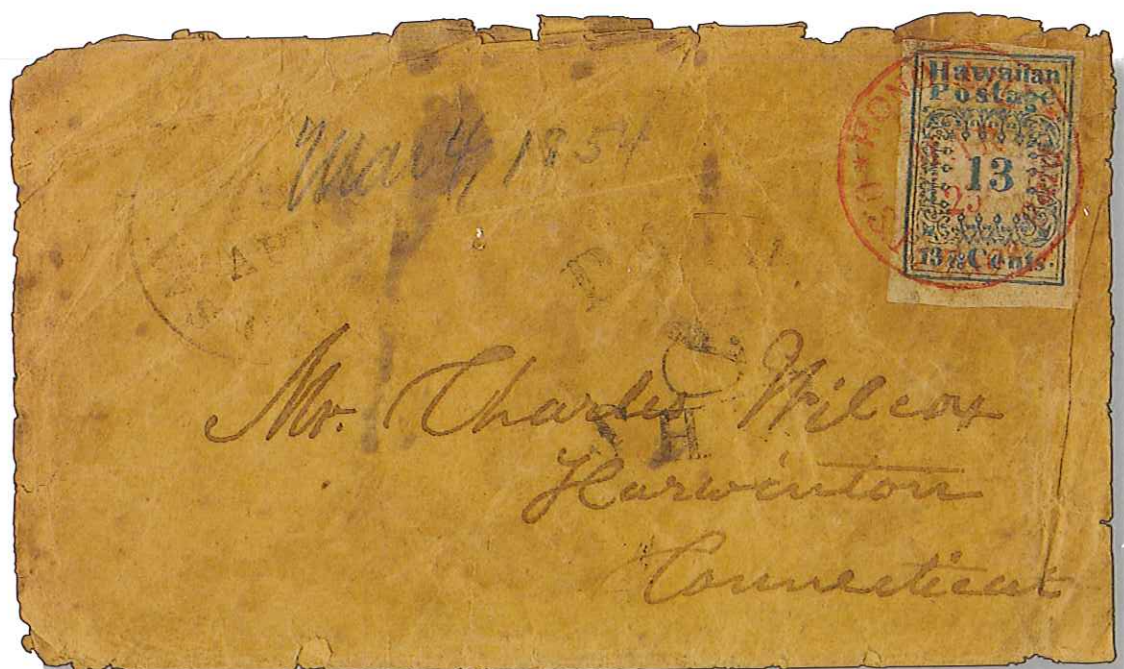 Hawaiian
Postage
13
13 Cents.
HONO
U.S.
25
Mar 4, 1854
APR
PAID
Mr. Charles Wilcox
Harwinton
Connecticut